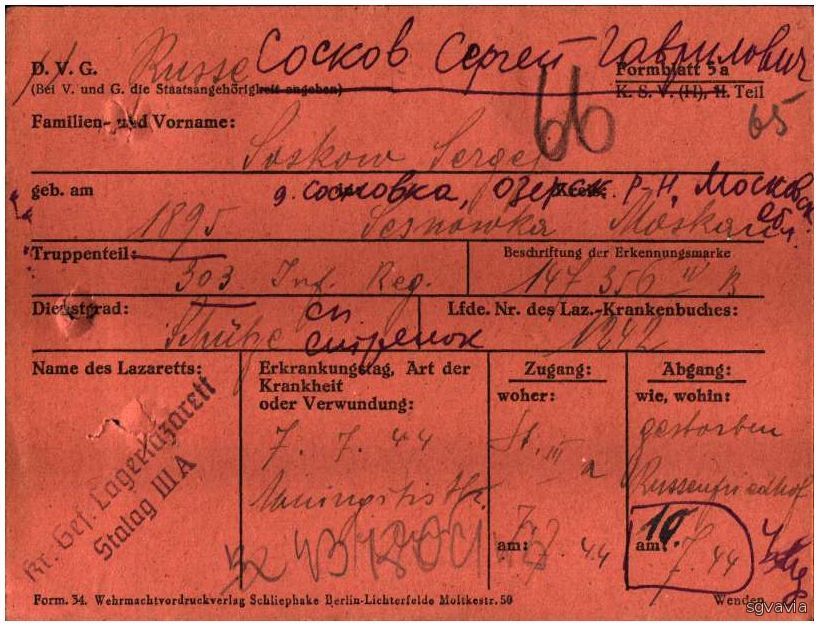 D. V. G. Russe Сосков Сергей Гаврилович
Formblatt 5a
(Bei V. und G. die Staatsangehörigkeit angeben)
K. S. V. (H), II. Teil
66
65
Familien- und Vorname:
Soskow Sergej
geb. am
д. Сосновка, Озерск. р-н, Московск. обл.
1895 Sesnowka Moskau
Truppenteil:
Beschriftung der Erkennungsmarke
303. Inf. Reg.
147 356 IV B
Dienstgrad:
СП
Lfde. Nr. des Laz.-Krankenbuches:
Schütze стрелок
1242
Name des Lazaretts:
Erkrankungstag, Art der
Krankheit
oder Verwundung:
Zugang:
woher:
Abgang:
wie, wohin:
Kr. Gef. Lagerlazarett
Stalag III A
7. 7. 44
St. III a
gestorben
Russenfriedhof
am: 7. 7. 44
am: 10. 7. 44
Form. 34. Wehrmachtvordruckverlag Schliephake Berlin-Lichterfelde Moltkestr. 50
Wenden
sgvavia